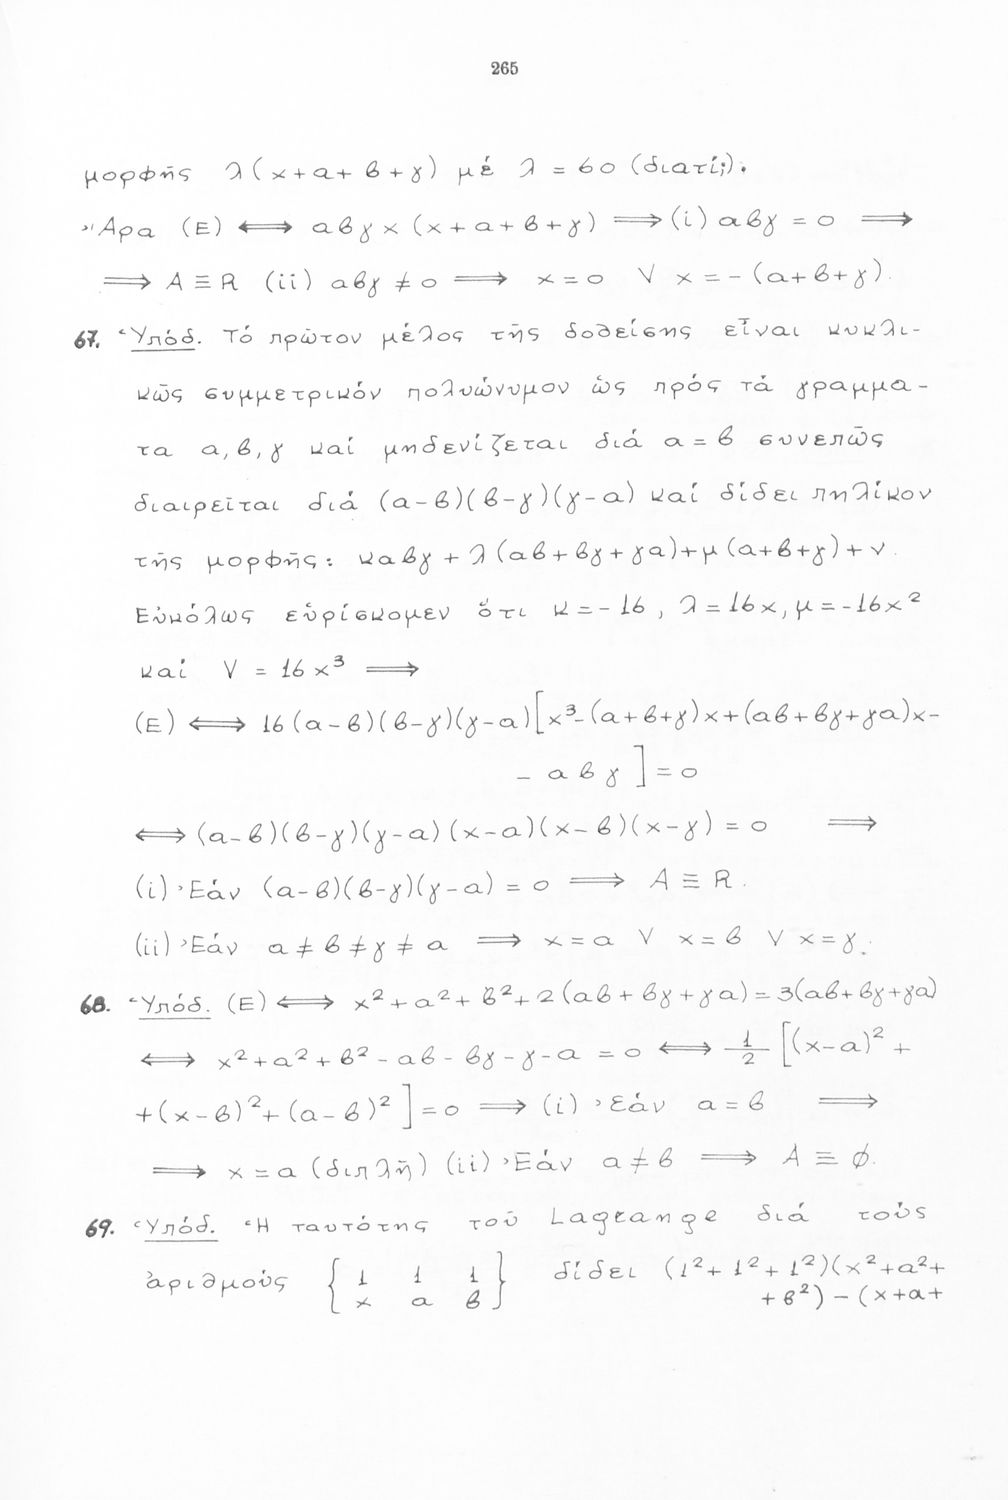 265
μορφῆς λ(x+α+β+γ) μέ λ = 60 (διατί;).
Ἄρα (Ε) ⟺ αβγx (x+α+β+γ) ⟹ (i) αβγ = 0 ⟹
⟹ A ≡ R (ii) αβγ ≠ 0 ⟹ x = 0 V x = -(α+β+γ).
67. Ὑπόδ. Τό πρῶτον μέλος τῆς δοθείσης εἶναι κυκλι-
κῶς συμμετρικόν πολυώνυμον ὡς πρός τά γραμμα-
τα α, β, γ καί μηδενίζεται διά α = β συνεπῶς
διαιρεῖται διά (α-β)(β-γ)(γ-α) καί δίδει πηλίκον
τῆς μορφῆς: καβγ + λ(αβ+βγ+γα)+μ(α+β+γ)+ν.
Εὐκόλως εὑρίσκομεν ὅτι κ = -16, λ = 16x, μ = -16x²
καί V = 16x³ ⟹
(Ε) ⟺ 16(α-β)(β-γ)(γ-α)[x³-(α+β+γ)x+(αβ+βγ+γα)x-
- αβγ] = 0
⟺ (α-β)(β-γ)(γ-α)(x-α)(x-β)(x-γ) = 0 ⟹
(i) Ἐάν (α-β)(β-γ)(γ-α) = 0 ⟹ A ≡ R.
(ii) Ἐάν α ≠ β ≠ γ ≠ α ⟹ x = α V x = β V x = γ.
68. Ὑπόδ. (Ε) ⟺ x²+α²+β²+2(αβ+βγ+γα) = 3(αβ+βγ+γα)
⟺ x²+α²+β²-αβ-βγ-γ-α = 0 ⟺ 1/2 [(x-α)²+
+(x-β)²+(α-β)²] = 0 ⟹ (i) Ἐάν α = β ⟹
⟹ x = α (διπλῆ) (ii) Ἐάν α ≠ β ⟹ A ≡ ∅.
69. Ὑπόδ. Ἡ ταυτότης τοῦ Lagrange διά τούς
ἀριθμούς { 1 1 1 } δίδει (1²+1²+1²)(x²+α²+
x α β +β²) - (x+α+